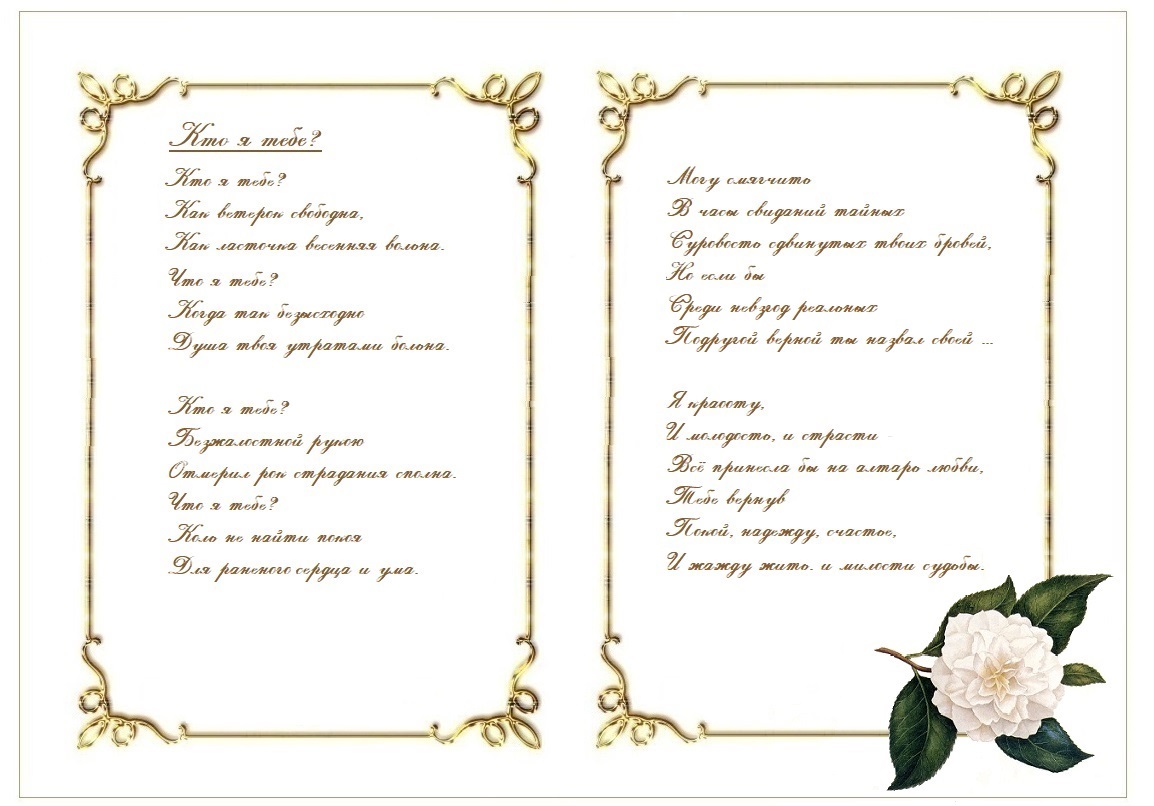 Кто я тебе?
Кто я тебе?
Как ветерок свободна,
Как ласточка весенняя вольна.
Что я тебе?
Когда так безысходно
Душа твоя утратами больна.
Кто я тебе?
Безжалостной рукою
Отмерил рок страдания сполна.
Что я тебе?
Коль не найти покоя
Для раненого сердца и ума.
Могу смягчить
В часы свиданий тайных
Суровость сдвинутых твоих бровей,
Но если бы
Среди невзгод реальных
Подругой верной ты назвал своей ...
Я красоту,
И молодость, и страсти
Всё принесла бы на алтарь любви,
Тебе вернув
Покой, надежду, счастье,
И жажду жить. и милости судьбы.